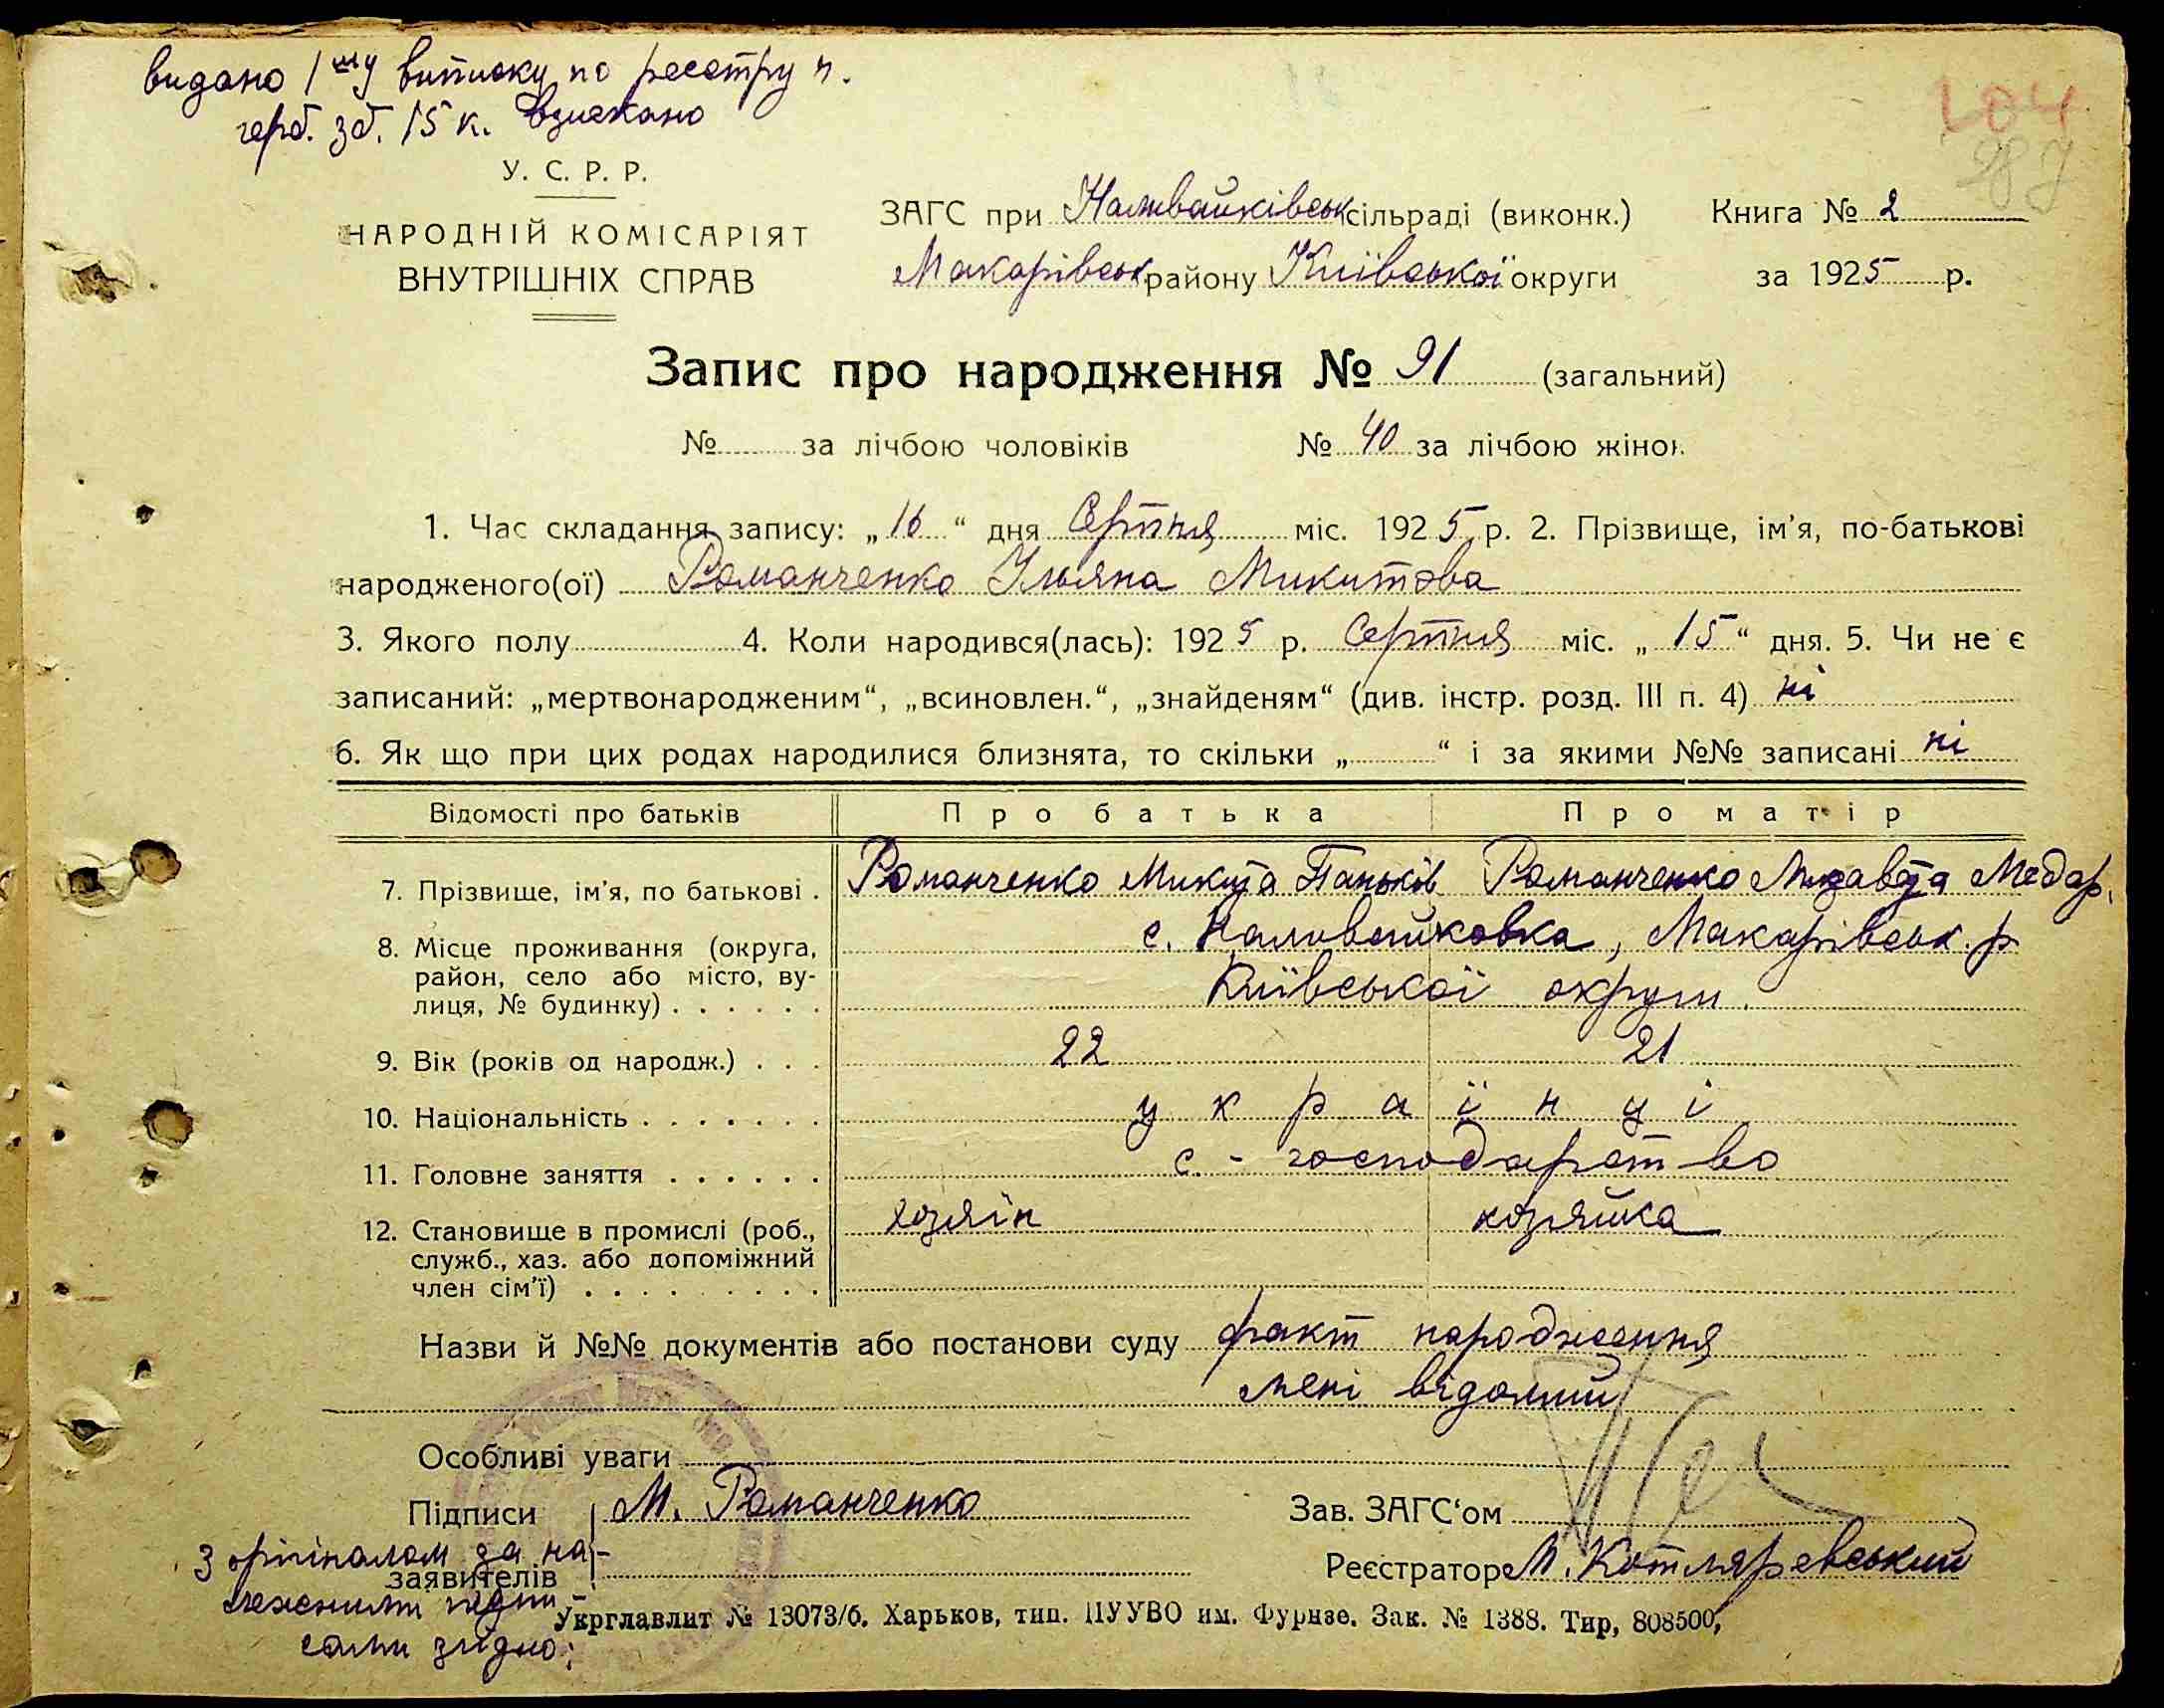 видано 1шу виписку по реєстру п.
герб. зб. 15 к. взискано
104
287
У. С. Р. Р.
НАРОДНІЙ КОМІСАРІЯТ
ВНУТРІШНІХ СПРАВ
ЗАГС при Наливайківськ сільраді (виконк.) Книга № 2
Макарівськ району Київської округи за 1925 р.
Запис про народження № 91 (загальний)
№ за лічбою чоловіків № 40 за лічбою жінок
1. Час складання запису: „16“ дня Серпня міс. 1925 р. 2. Прізвище, ім'я, по-батькові
народженого(ої) Романченко Ульяна Микитова
3. Якого полу 4. Коли народився(лась): 1925 р. Серпня міс. „15“ дня. 5. Чи не є
записаний: „мертвонародженим“, „всиновлен.“, „знайденям“ (див. інстр. розд. III п. 4) ні
6. Як що при цих родах народилися близнята, то скільки „ “ і за якими №№ записані ні
Відомості про батьків Про батька Про матір
7. Прізвище, ім'я, по батькові . Романченко Микита Паньків Романченко Лизавета Медар.
8. Місце проживання (округа, с. Наливайковка, Макарівськ. р
район, село або місто, ву-
лиця, № будинку) . . . . . . Київської округи.
9. Вік (років од народж.) . . . 22 21
10. Національність . . . . . . . українці
11. Головне заняття . . . . . . с. - господарство
12. Становище в промислі (роб., хозяїн хозяйка
служб., хаз. або допоміжний
член сім'ї) . . . . . . . . .
Назви й №№ документів або постанови суду факт народження
мені відомий
Особливі уваги
Підписи М. Романченко Зав. ЗАГС‘ом
З оригіналом за на-
заявителів Реєстратор М. Котляревський
лежними підпи-
сами згідно:
Укрглавлит № 13073/6. Харьков, тип. ПУУВО им. Фурнзе. Зак. № 1388. Тир, 808500,